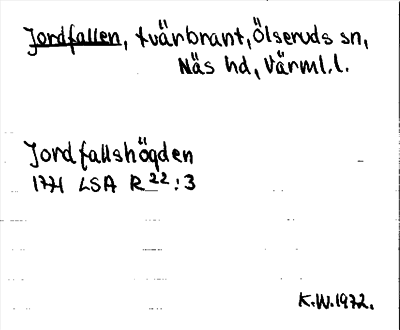 Jordfallen, tvärbrant, Ölseruds sn,
Näs hd, Värml.l.
Jordfallshögden
1771 LSA R 22:3
K.W.1972.